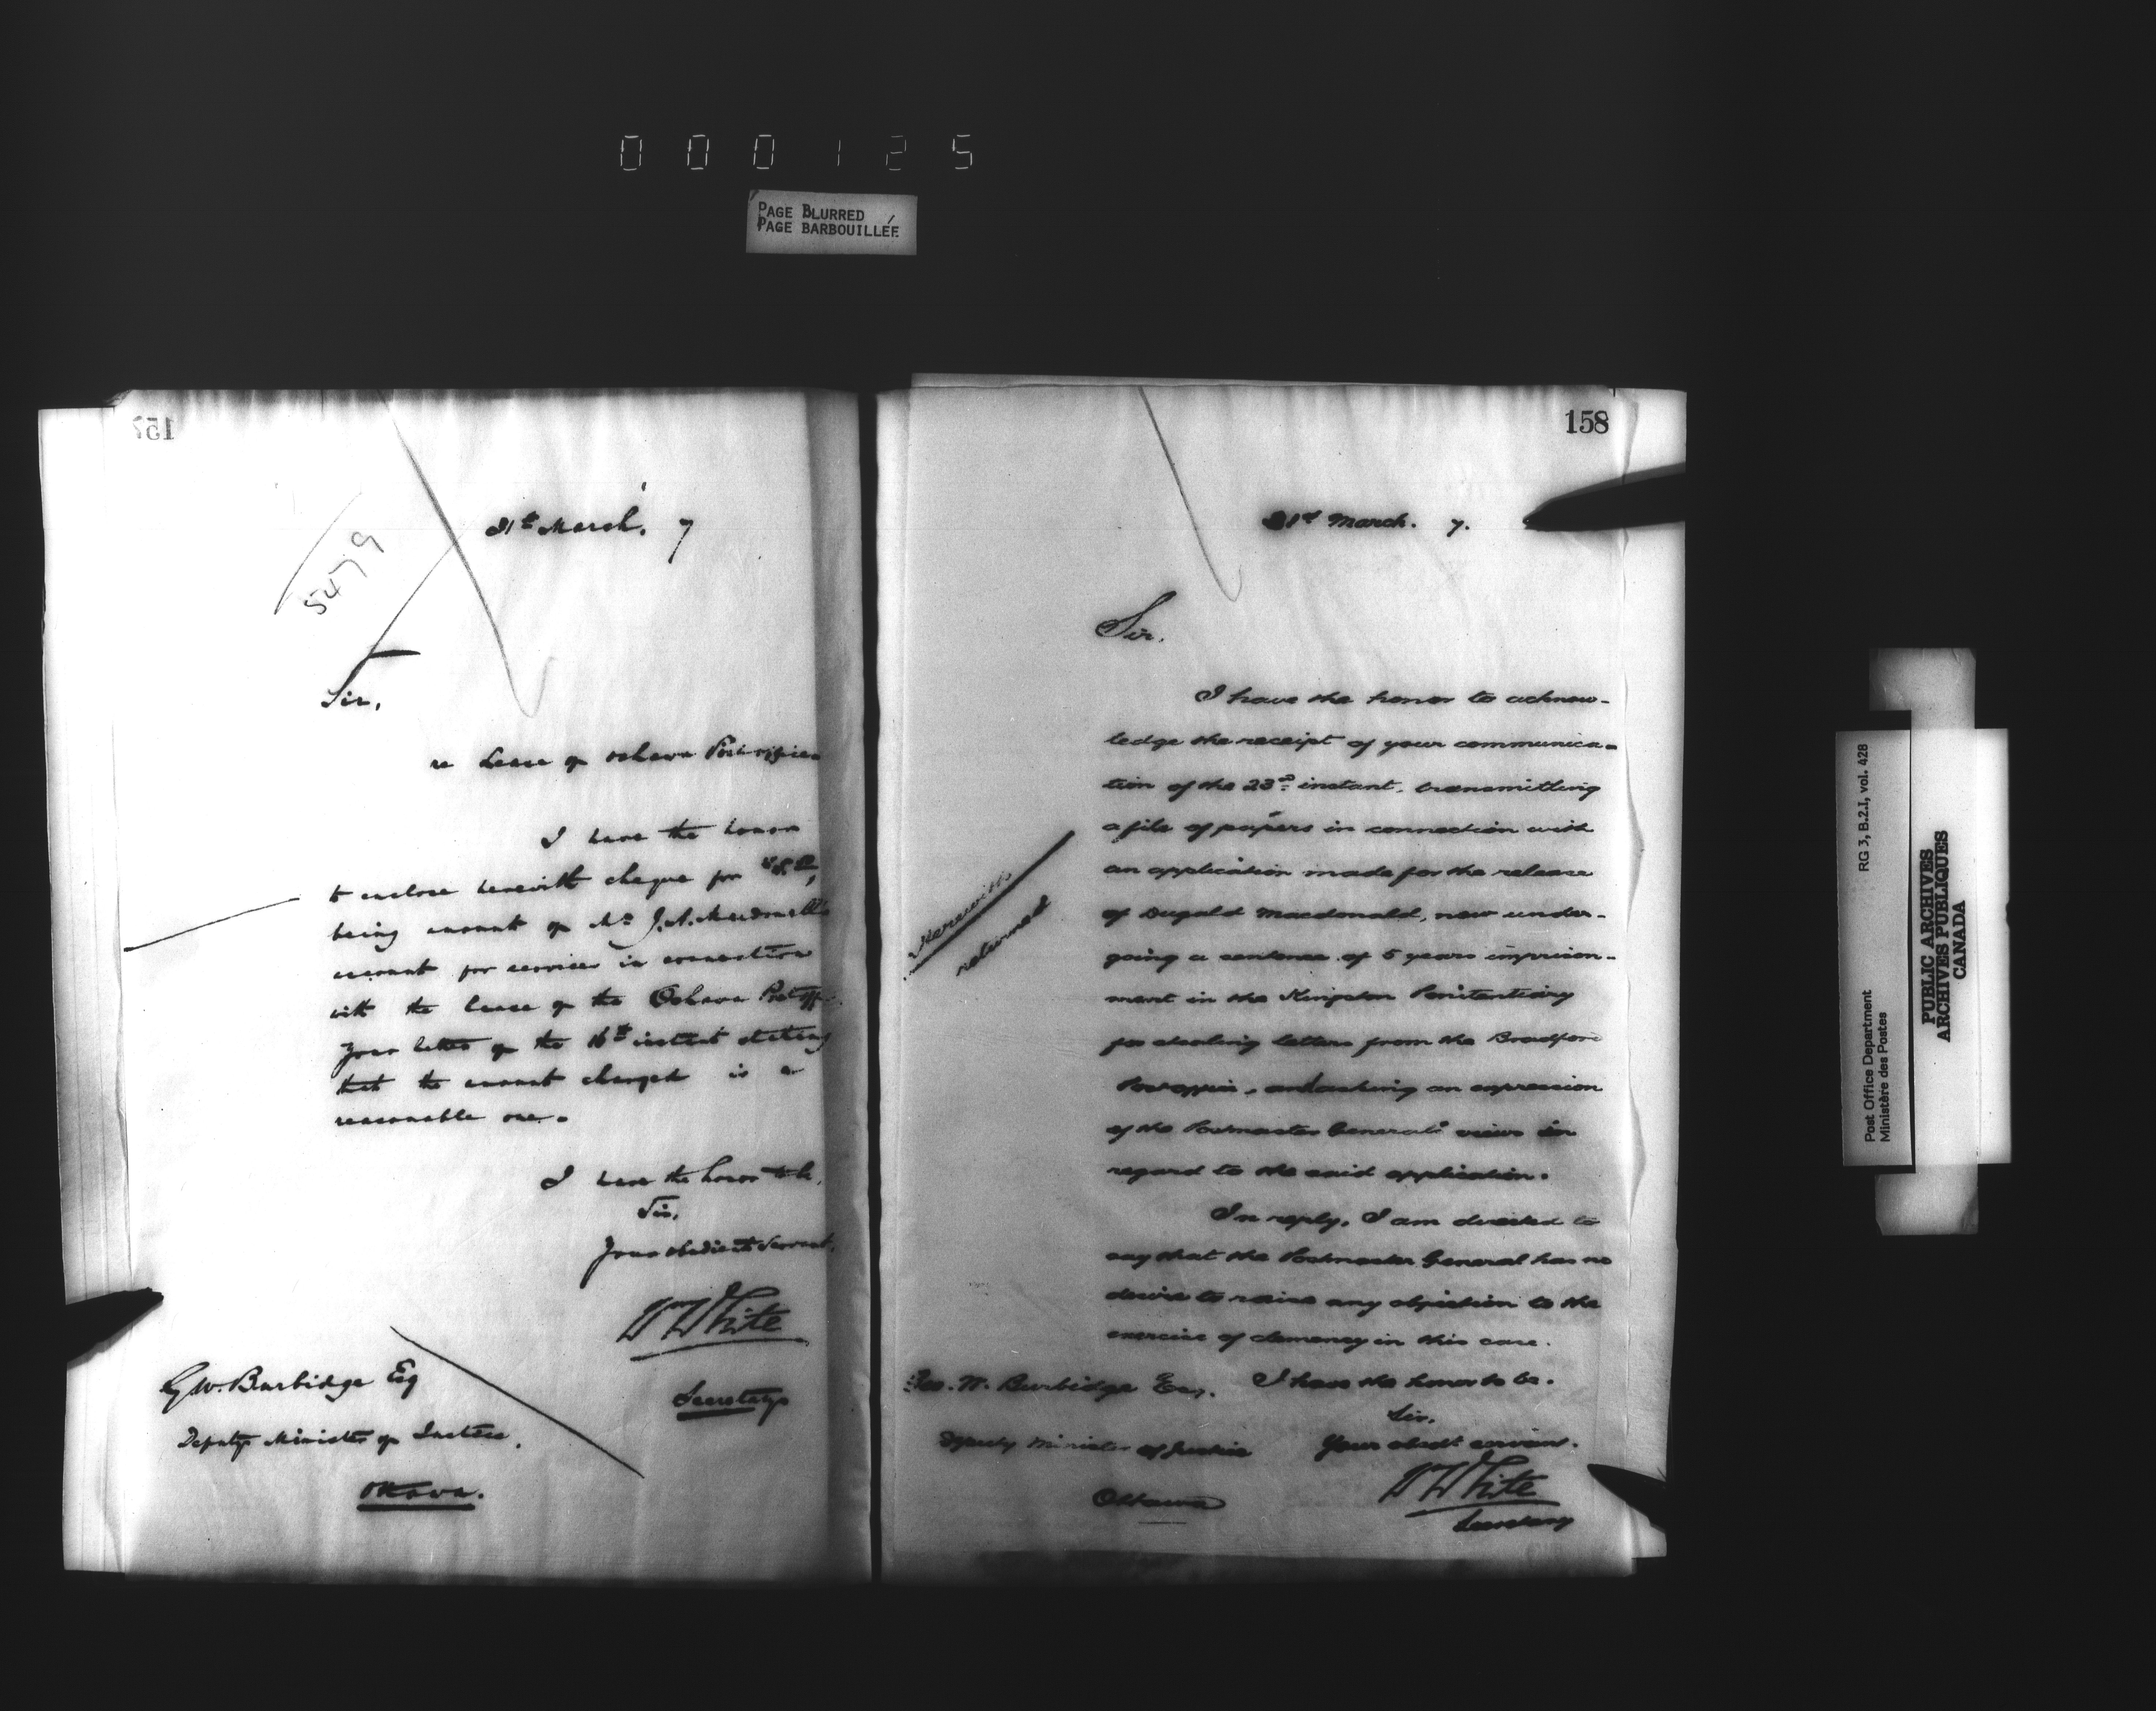 000125
PAGE BLURRED
PAGE BARBOUILLÉE
157
31st March. 7
5479
Sir,
re Lease of Oshawa Post office
I have the honor
to enclose herewith cheque for
being amount of Mr J. A. Macdonell's
account for services in connection
with the lease of the Oshawa Post off
Your letter of the 16th instant stating
that the amount charged is a
reasonable one.
I have the honor to be,
Sir,
Your obedient Servant,
Wm White
Secretary
G. W. Burbidge Esq
Deputy Minister of Justice,
Ottawa.
158
31st March. 7.
Sir.
I have the honor to acknow-
ledge the receipt of your communica-
tion of the 23rd instant, transmitting
a file of papers in connection with
an application made for the release
of Dugald Macdonald, now under-
going a sentence of 5 years imprison-
ment in the Kingston Penitentiary
for stealing letters from the Bradford
Post office, and asking an expression
of the Postmaster General's views in
regard to the said application.
Herewith
returned
In reply, I am directed to
say that the Postmaster General has no
desire to raise any objection to the
exercise of clemency in this case.
I have the honor to be.
Sir,
Your obedt servant.
W White
Secretary
Geo. W. Burbidge Esq.
Deputy Minister of Justice
Ottawa
Post Office Department RG 3, B.2.I, vol. 428
Ministère des Postes
PUBLIC ARCHIVES
ARCHIVES PUBLIQUES
CANADA